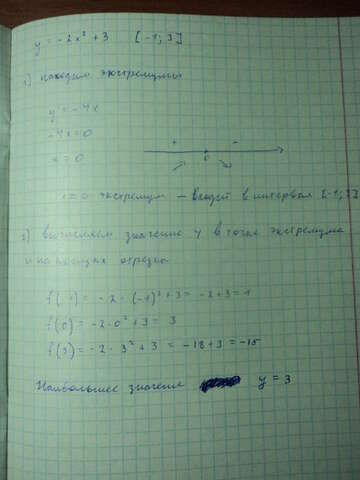 y = -2x² + 3 [-1; 3]
1) находим экстремумы
y' = -4x
-4x = 0
x = 0
+ -
0
x = 0 экстремум - входит в интервал [-1; 3]
2) вычисляем значение y в точке экстремума
и на концах отрезка
f(-1) = -2 · (-1)² + 3 = -2+3 = 1
f(0) = -2 · 0² + 3 = 3
f(3) = -2 · 3² + 3 = -18+3 = -15
Наибольшее значение y = 3